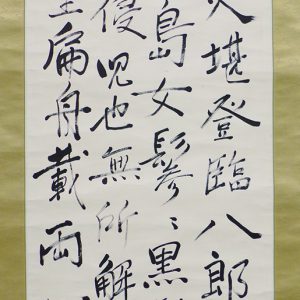 堪登臨八郎
島女鬖〻黒
侵児也無所解
扁舟載両